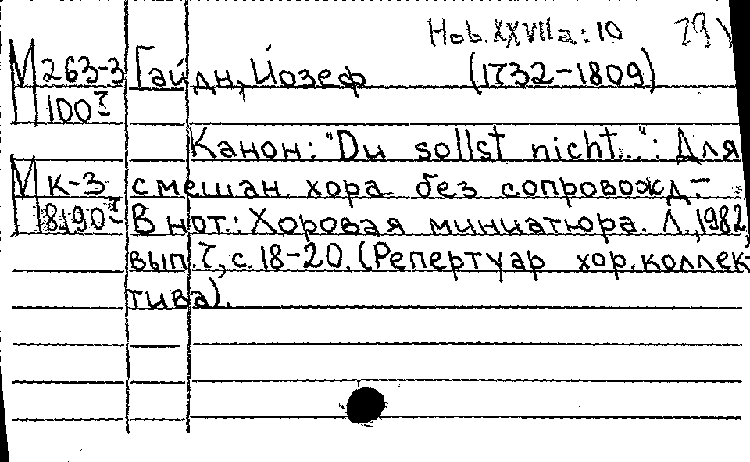 Hob. XXVIIa: 10
М 263-3 Гайдн, Йозеф (1732-1809)
100
Канон: "Du sollst nicht...": Для
М к-3 смешан хора без сопровожд.-
В нот.: Хоровая миниатюра. Л., 1982,
вып. 7, с. 18-20. (Репертуар хор. коллек-
тива).